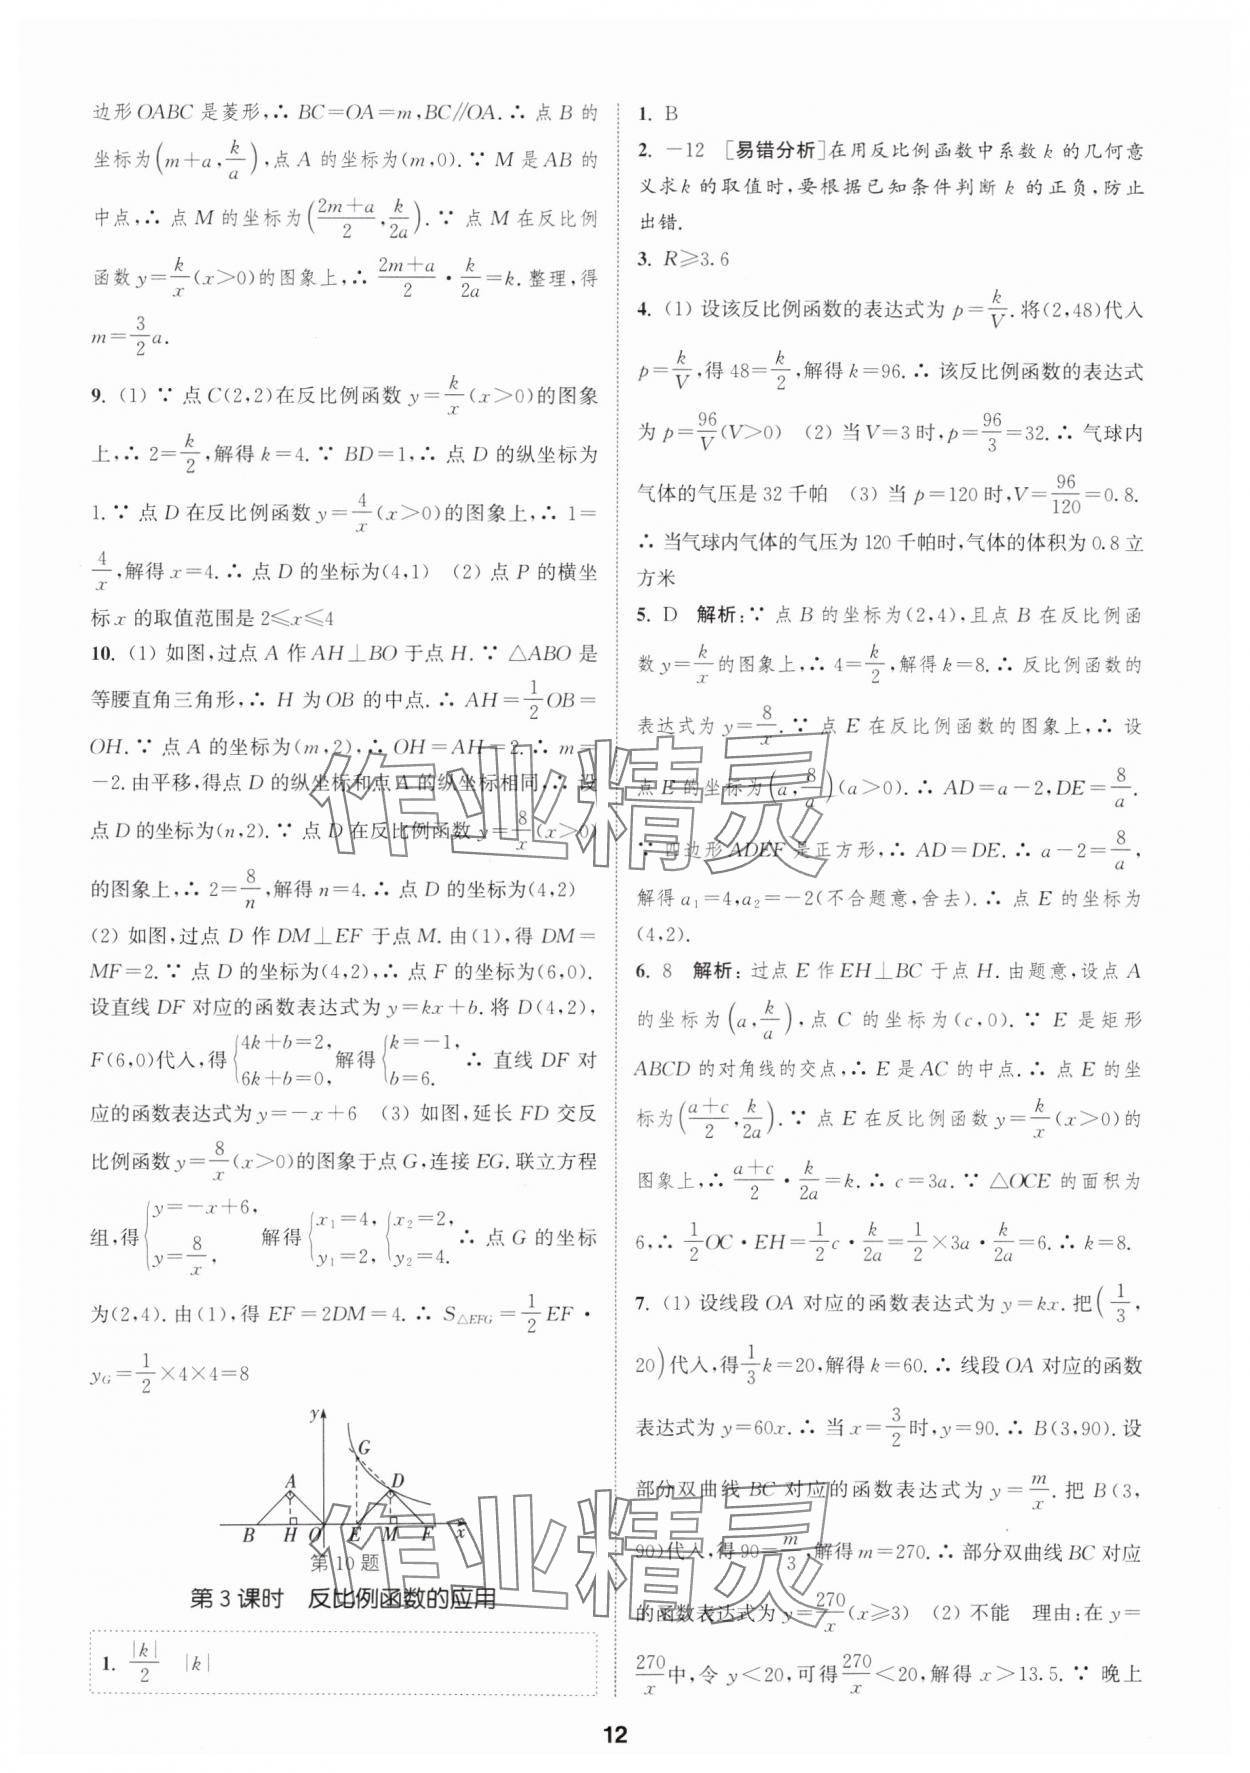 边形OABC是菱形,∴ BC=OA=m,BC∥OA.∴ 点B的
坐标为(m+a,k/a),点A的坐标为(m,0).∵ M是AB的
中点,∴ 点M的坐标为((2m+a)/2,k/2a).∵ 点M在反比例
函数y=k/x(x>0)的图象上,∴ (2m+a)/2·k/2a=k.整理,得
m=3/2a.
9. (1) ∵ 点C(2,2)在反比例函数y=k/x(x>0)的图象
上,∴ 2=k/2,解得k=4.∵ BD=1,∴ 点D的纵坐标为
1.∵ 点D在反比例函数y=4/x(x>0)的图象上,∴ 1=
4/x,解得x=4.∴ 点D的坐标为(4,1) (2) 点P的横坐
标x的取值范围是2≤x≤4
10. (1) 如图,过点A作AH⊥BO于点H.∵ △ABO是
等腰直角三角形,∴ H为OB的中点.∴ AH=1/2OB=
OH.∵ 点A的坐标为(m,2),∴ OH=AH=2.∴ m=
-2.由平移,得点D的纵坐标和点A的纵坐标相同,∴ 设
点D的坐标为(n,2).∵ 点D在反比例函数y=8/x(x>0)
的图象上,∴ 2=8/n,解得n=4.∴ 点D的坐标为(4,2)
(2) 如图,过点D作DM⊥EF于点M.由(1),得DM=
MF=2.∵ 点D的坐标为(4,2),∴ 点F的坐标为(6,0).
设直线DF对应的函数表达式为y=kx+b.将D(4,2),
F(6,0)代入,得{4k+b=2, 6k+b=0, 解得{k=-1, b=6. ∴ 直线DF对
应的函数表达式为y=-x+6 (3) 如图,延长FD交反
比例函数y=8/x(x>0)的图象于点G,连接EG.联立方程
组,得{y=-x+6, y=8/x, 解得{x₁=4, y₁=2, {x₂=2, y₂=4. ∴ 点G的坐标
为(2,4).由(1),得EF=2DM=4.∴ S△EFG=1/2EF·
yG=1/2×4×4=8
y
G
A
D
B H O E M F x
第10题
第3课时 反比例函数的应用
1. |k|/2 |k|
1. B
2. -12 [易错分析]在用反比例函数中系数k的几何意
义求k的取值时,要根据已知条件判断k的正负,防止
出错.
3. R≥3.6
4. (1) 设该反比例函数的表达式为p=k/V.将(2,48)代入
p=k/V,得48=k/2,解得k=96.∴ 该反比例函数的表达式
为p=96/V(V>0) (2) 当V=3时,p=96/3=32.∴ 气球内
气体的气压是32千帕 (3) 当p=120时,V=96/120=0.8.
∴ 当气球内气体的气压为120千帕时,气体的体积为0.8立
方米
5. D 解析:∵ 点B的坐标为(2,4),且点B在反比例函
数y=k/x的图象上,∴ 4=k/2,解得k=8.∴ 反比例函数的
表达式为y=8/x.∵ 点E在反比例函数的图象上,∴ 设
点E的坐标为(a,8/a)(a>0).∴ AD=a-2,DE=8/a.
∵ 四边形ADEF是正方形,∴ AD=DE.∴ a-2=8/a,
解得a₁=4,a₂=-2(不合题意,舍去).∴ 点E的坐标为
(4,2).
6. 8 解析:过点E作EH⊥BC于点H.由题意,设点A
的坐标为(a,k/a),点C的坐标为(c,0).∵ E是矩形
ABCD的对角线的交点,∴ E是AC的中点.∴ 点E的坐
标为((a+c)/2,k/2a).∵ 点E在反比例函数y=k/x(x>0)的
图象上,∴ (a+c)/2·k/2a=k.∴ c=3a.∵ △OCE的面积为
6,∴ 1/2OC·EH=1/2c·k/2a=1/2×3a·k/2a=6.∴ k=8.
7. (1) 设线段OA对应的函数表达式为y=kx.把(1/3,
20)代入,得1/3k=20,解得k=60.∴ 线段OA对应的函数
表达式为y=60x.∴ 当x=3/2时,y=90.∴ B(3,90).设
部分双曲线BC对应的函数表达式为y=m/x.把B(3,
90)代入,得90=m/3,解得m=270.∴ 部分双曲线BC对应
的函数表达式为y=270/x(x≥3) (2) 不能 理由:在y=
270/x中,令y<20,可得270/x<20,解得x>13.5.∵ 晚上
12
作业精灵
作业精灵